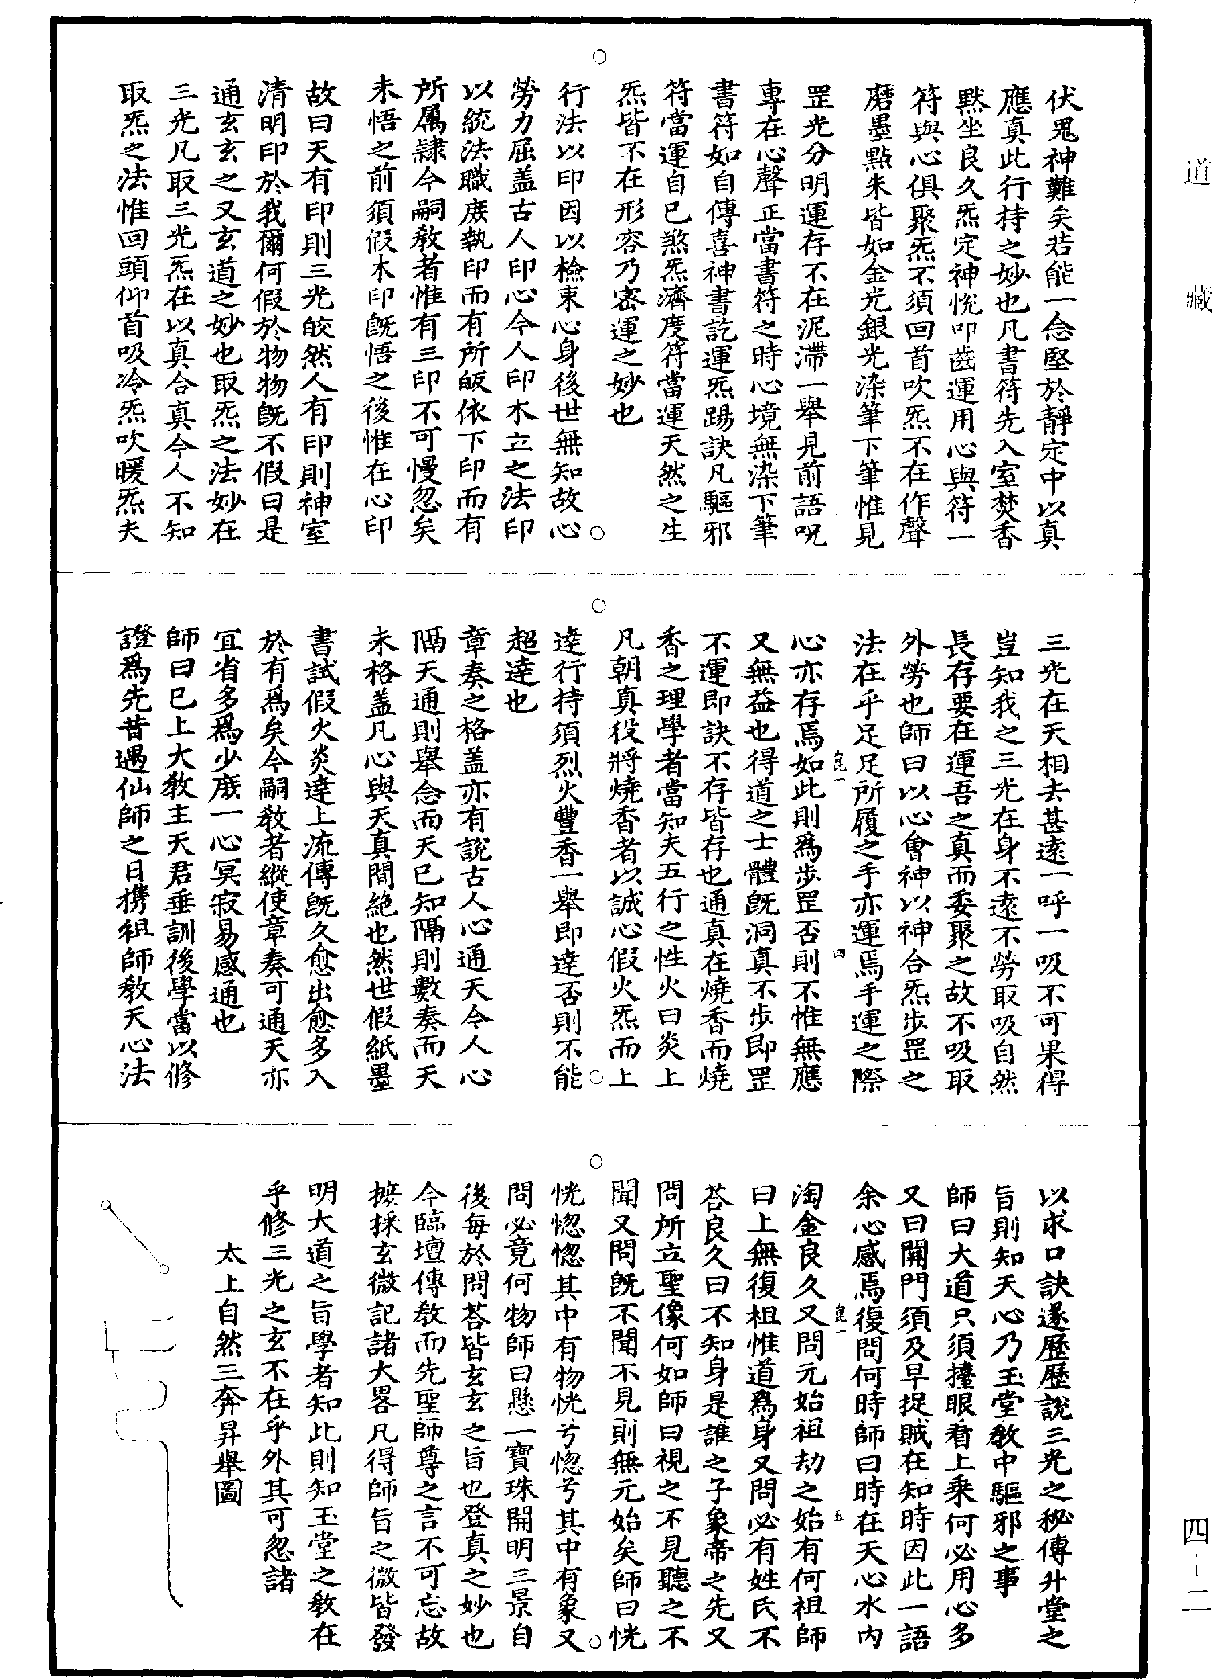 道藏
四一二
伏鬼神難矣若能一念堅於靜定中以真
應真此行持之妙也凡書符先入室焚香
黙坐良久炁定神恱叩齒運用心與符一
符與心俱聚炁不須回首吹炁不在作聲
磨墨點朱皆如金光銀光染筆下筆惟見
罡光分明運存不在泥滯一舉見前語呪
專在心聲正當書符之時心境無染下筆
書符如自傳喜神書訖運炁踢訣凡驅邪
符當運自已煞炁濟度符當運天然之生
炁皆不在形容乃密運之妙也
行法以印因以檢束心身後世無知故心
勞力屈盖古人印心今人印木立之法印
以統法職庻執印而有所皈依下印而有
所屬隷今嗣教者惟有三印不可慢忽矣
未悟之前須假木印旣悟之後惟在心印
故曰天有印則三光皎然人有印則神室
清明印於我爾何假於物物旣不假曰是
通玄玄之又玄道之妙也取炁之法妙在
三光凡取三光炁在以真合真今人不知
取炁之法惟回頭仰首吸冷炁吹暖炁夫
三光在天相去甚遠一呼一吸不可果得
豈知我之三光在身不遠不勞取吸自然
長存要在運吾之真而委聚之故不吸取
外勞也師曰以心會神以神合炁步罡之
法在乎足足所履之手亦運焉手運之際
心亦存焉如此則爲步罡否則不惟無應
又無益也得道之士體旣洞真不步即罡
不運即訣不存皆存也通真在燒香而燒
香之理學者當知夫五行之性火曰炎上
凡朝真役將燒香者以誠心假火炁而上
逹行持須烈火豐香一舉即逹否則不能
超逹也
章奏之格盖亦有說古人心通天今人心
隔天通則舉念而天已知隔則數奏而天
未格盖凡心與天真間絶也然世假紙墨
書試假火炎逹上流傳旣久愈出愈多入
於有爲矣今嗣教者縱使章奏可通天亦
宜省多爲少庻一心冥寂易感通也
師曰巳上大教主天君垂訓後學當以修
證爲先昔遇仙師之日携祖師教天心法
以求口訣遂歷歷說三光之秘傳升堂之
旨則知天心乃玉堂教中驅邪之事
師曰大道只須擡眼看上乘何必用心多
又曰開門須及早捉賊在知時因此一語
余心感焉復問何時師曰時在天心水内
淘金良久又問元始祖劫之始有何祖師
曰上無復祖惟道爲身又問必有姓氏不
荅良久曰不知身是誰之子象帝之先又
問所立聖像何如師曰視之不見聽之不
聞又問旣不聞不見則無元始矣師曰恍
恍惚惚其中有物恍兮惚兮其中有象又
問必竟何物師曰懸一寶珠開明三景自
後每於問荅皆玄玄之旨也登真之妙也
今臨壇傳教而先聖師尊之言不可忘故
摭採玄微記諸大畧凡得師旨之微皆發
明大道之旨學者知此則知玉堂之教在
乎修三光之玄不在乎外其可忽諸
太上自然三奔昇舉圖